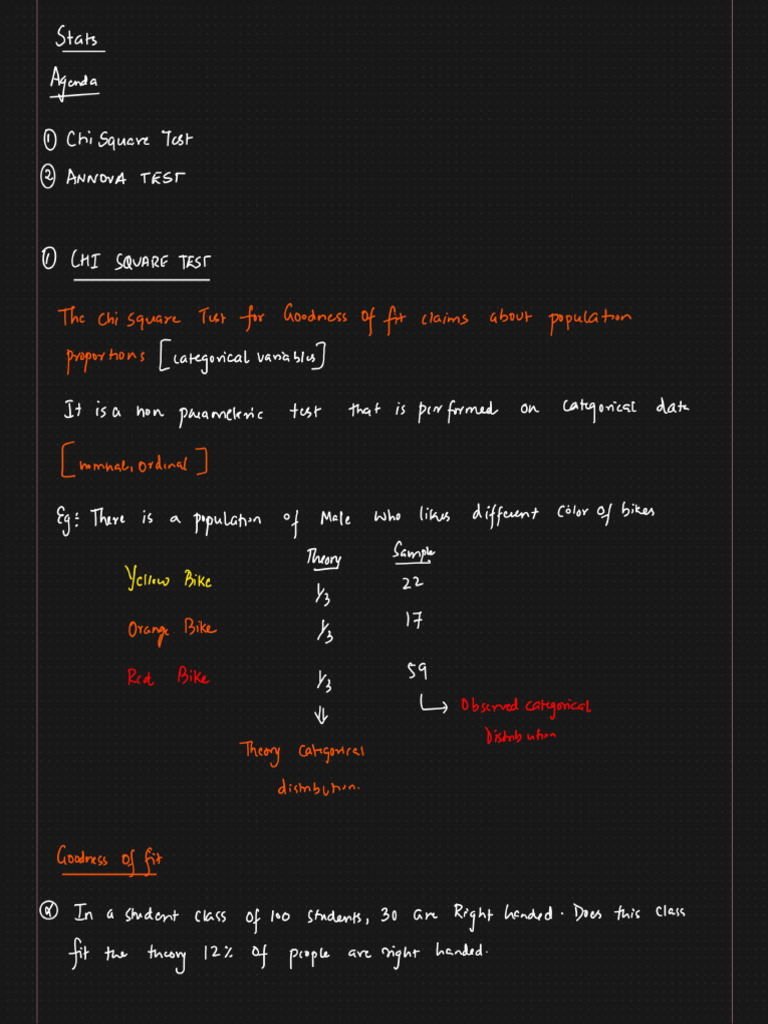 Stats
Agenda
① Chi Square Test
② ANNOVA TEST
① CHI SQUARE TEST
The Chi Square Test for Goodness Of fit claims about population
proportions [categorical variables]
It is a non parametric test that is performed on categorical data
[nominal, ordinal]
Eg: There is a population of Male who likes different color of bikes
Theory Sample
Yellow Bike 1/3 22
Orange Bike 1/3 17
Red Bike 1/3 59
⇓ ↳ Observed categorical
Distribution
Theory categorical
distribution.
Goodness of fit
Q In a student class of 100 students, 30 are Right handed. Does this class
fit the theory 12% of people are right handed.